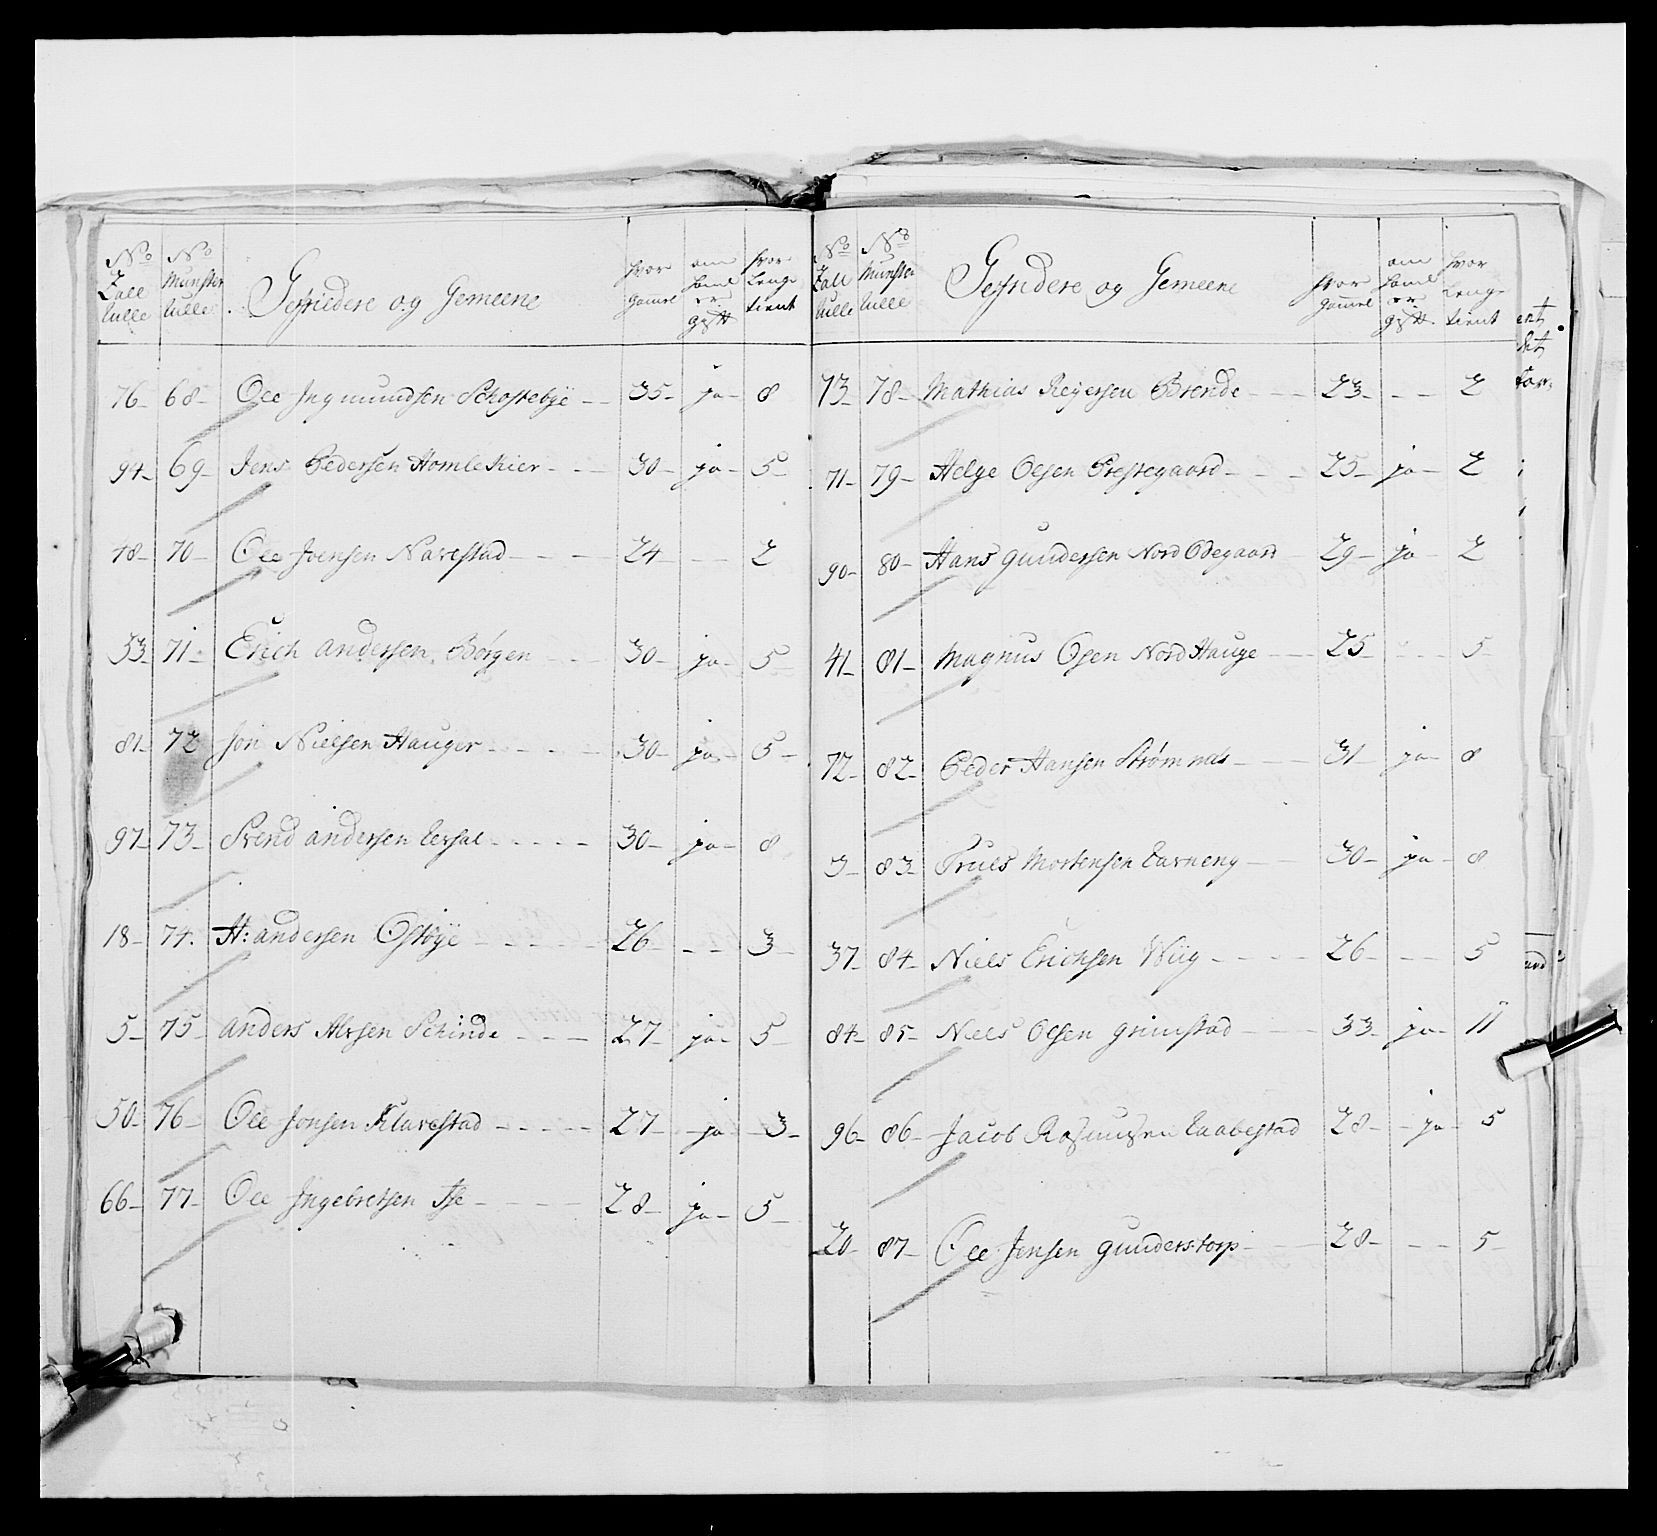 No Zall Rulle | No Munster Rulle | Gefriedere og Gemeene | hvor gamel | om hand er gift | hvor lenge tient
76 - 68 - Ole Ingmundsen Schostebye - - 35 - ja - 8
94 - 69 - Jens Pedersen Homlekier - - - 30 - ja - 5
48 - 70 - Ole Joensen Navestad - - - 24 - - - 2
53 - 71 - Erich andersen Børgen - - - 30 - ja - 5
81 - 72 Jon Nielsen Hauger - - - - 30 - ja - 5 -
97 - 73 - Svend andersen - - - - - 30 - ja - 8
18 - 74. H: andersen Ostøÿe - - - - - 26 - - - 3 -
5 - 75 - anders Schinde - - - - 27 - ja - 5 -
50 - 76 - Ole Jonsen Klavestad - - - - - 27 - ja - 3 -
66 - 77 - Ole Ingebretsen - - - - 28 - ja - 5 -
No Zall Rulle | No Munster Rulle | Gefridere og Gemeene | hvor gamel | om hand er gift | hvor lenge tient
73 - 78 - Mathias Reyersen Brende - - - 23 - - - 2
71 - 79 - Helge Olsen Prestegaard - - - 25 - ja - 2
90 - 80 - Hans gundersen Nord Odegaard 29 - ja - 2
41 - 81 - Magnus Olsen Nord Hauge - - 25 - - - 5
72 - 82 - Peder Hansen Strømnes - - - 31 - ja - 8
83 - Truls Mortensen - - 30 - ja - 8
37 - 84 - Niels Erichsen Wiig - - - - 26 - - - 5
84 - 85 - Niels Olsen grimstad - - - 33 - ja - 11
96 - 86 - Jacob Rasmusen 28 - ja - 5
20 - 87 - Ole Jensen gunderstorp - - - 28 - - - 5 -